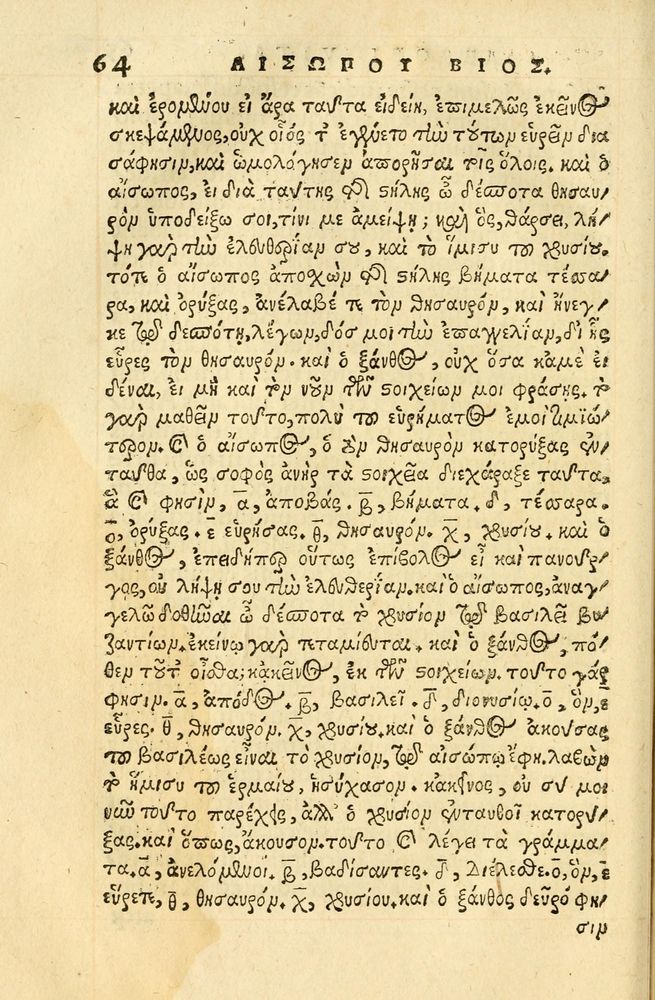 64 ΑΙΣΩΠΟΥ ΒΙΟΣ.
καὶ ἐρομένου εἰ ἄρα ταῦτα εἰδείη, ἐπιμελῶς ἐκεῖνος
σκεψάμενος, οὐχ οἷός τ' ἐγένετο τὴν τούτων εὑρεῖν δια
σάφησιν, καὶ ὡμολόγησεν ἀπορῆσαι τοῖς ὅλοις. καὶ ὁ
αἴσωπος, εἰ διὰ ταύτης τῆς στήλης ὦ δέσποτα θησαυ/
ρὸν ὑποδείξω σοι, τίνι με ἀμείψῃ; καὶ ὃς, θάρσει, λή/
ψῃ γὰρ τὴν ἐλευθερίαν σου, καὶ τὸ ἥμισυ τοῦ χρυσίου.
τότε ὁ αἴσωπος ἀποχὼν τῆς στήλης βήματα τέσσα/
ρα, καὶ ὀρύξας, ἀνέλαβέ τε τὸν θησαυρόν, καὶ ἤνεγ/
κε τῷ δεσπότῃ, λέγων, δός μοι τὴν ἐπαγγελίαν, δι' ἧς
εὗρες τὸν θησαυρόν. καὶ ὁ ξάνθος, οὐχ ὅσα κἀμὲ εἰ
δέναι, εἰ μὴ καὶ τὸν νοῦν τῶν στοιχείων μοι φράσῃς. τὸ
γὰρ μαθεῖν τοῦτο, πολὺ τοῦ εὑρήματος ἐμοὶ τιμιώ/
τερον. καὶ ὁ αἴσωπος, ὁ τὸν θησαυρὸν κατορύξας ἐν/
ταῦθα, ὡς σοφὸς ἀνὴρ τὰ στοιχεῖα διεχάραξε ταῦτα.
ἃ καί φησιν, α, ἀποβάς. β, βήματα. δ, τέσσαρα.
ο, ὀρύξας. ε εὑρήσας. θ, θησαυρόν. χ, χρυσίου. καὶ ὁ
ξάνθος, ἐπειδήπερ οὕτως ἐπίβολος εἶ καὶ πανοῦρ/
γος, οὐ λήψῃ σου τὴν ἐλευθερίαν. καὶ ὁ αἴσωπος, ἀναγ/
γελῶ δοθῆναι ὦ δέσποτα τὸ χρυσίον τῷ βασιλεῖ βυ/
ζαντίων. ἐκείνῳ γὰρ τεταμίευται. καὶ ὁ ξάνθος, πό/
θεν τοῦτ' οἶσθα; κἀκεῖνος, ἐκ τῶν στοιχείων. τοῦτο γάρ
φησιν. α, ἀπόδος. β, βασιλεῖ. δ, διονυσίῳ. ο, ὃν, ε
εὗρες. θ, θησαυρόν. χ, χρυσίου. καὶ ὁ ξάνθος ἀκούσας
τοῦ βασιλέως εἶναι τὸ χρυσίον, τῷ αἰσώπῳ ἔφη. λαβὼν
τὸ ἥμισυ τοῦ ἑρμαίου, ἡσύχασον. κἀκεῖνος, οὐ σύ μοι
νῦν τοῦτο παρέχεις, ἀλλ' ὁ χρυσίον ἐνταυθοῖ κατορύ/
ξας. καὶ ὅπως, ἄκουσον. τοῦτο καὶ λέγει τὰ γράμμα/
τα. α, ἀνελόμενοι. β, βαδίσαντες. δ, διέλεσθε. ο, ὃν, ε
εὕρετε, θ, θησαυρόν. χ, χρυσίου. καὶ ὁ ξάνθος δεῦρό φη/
σιν